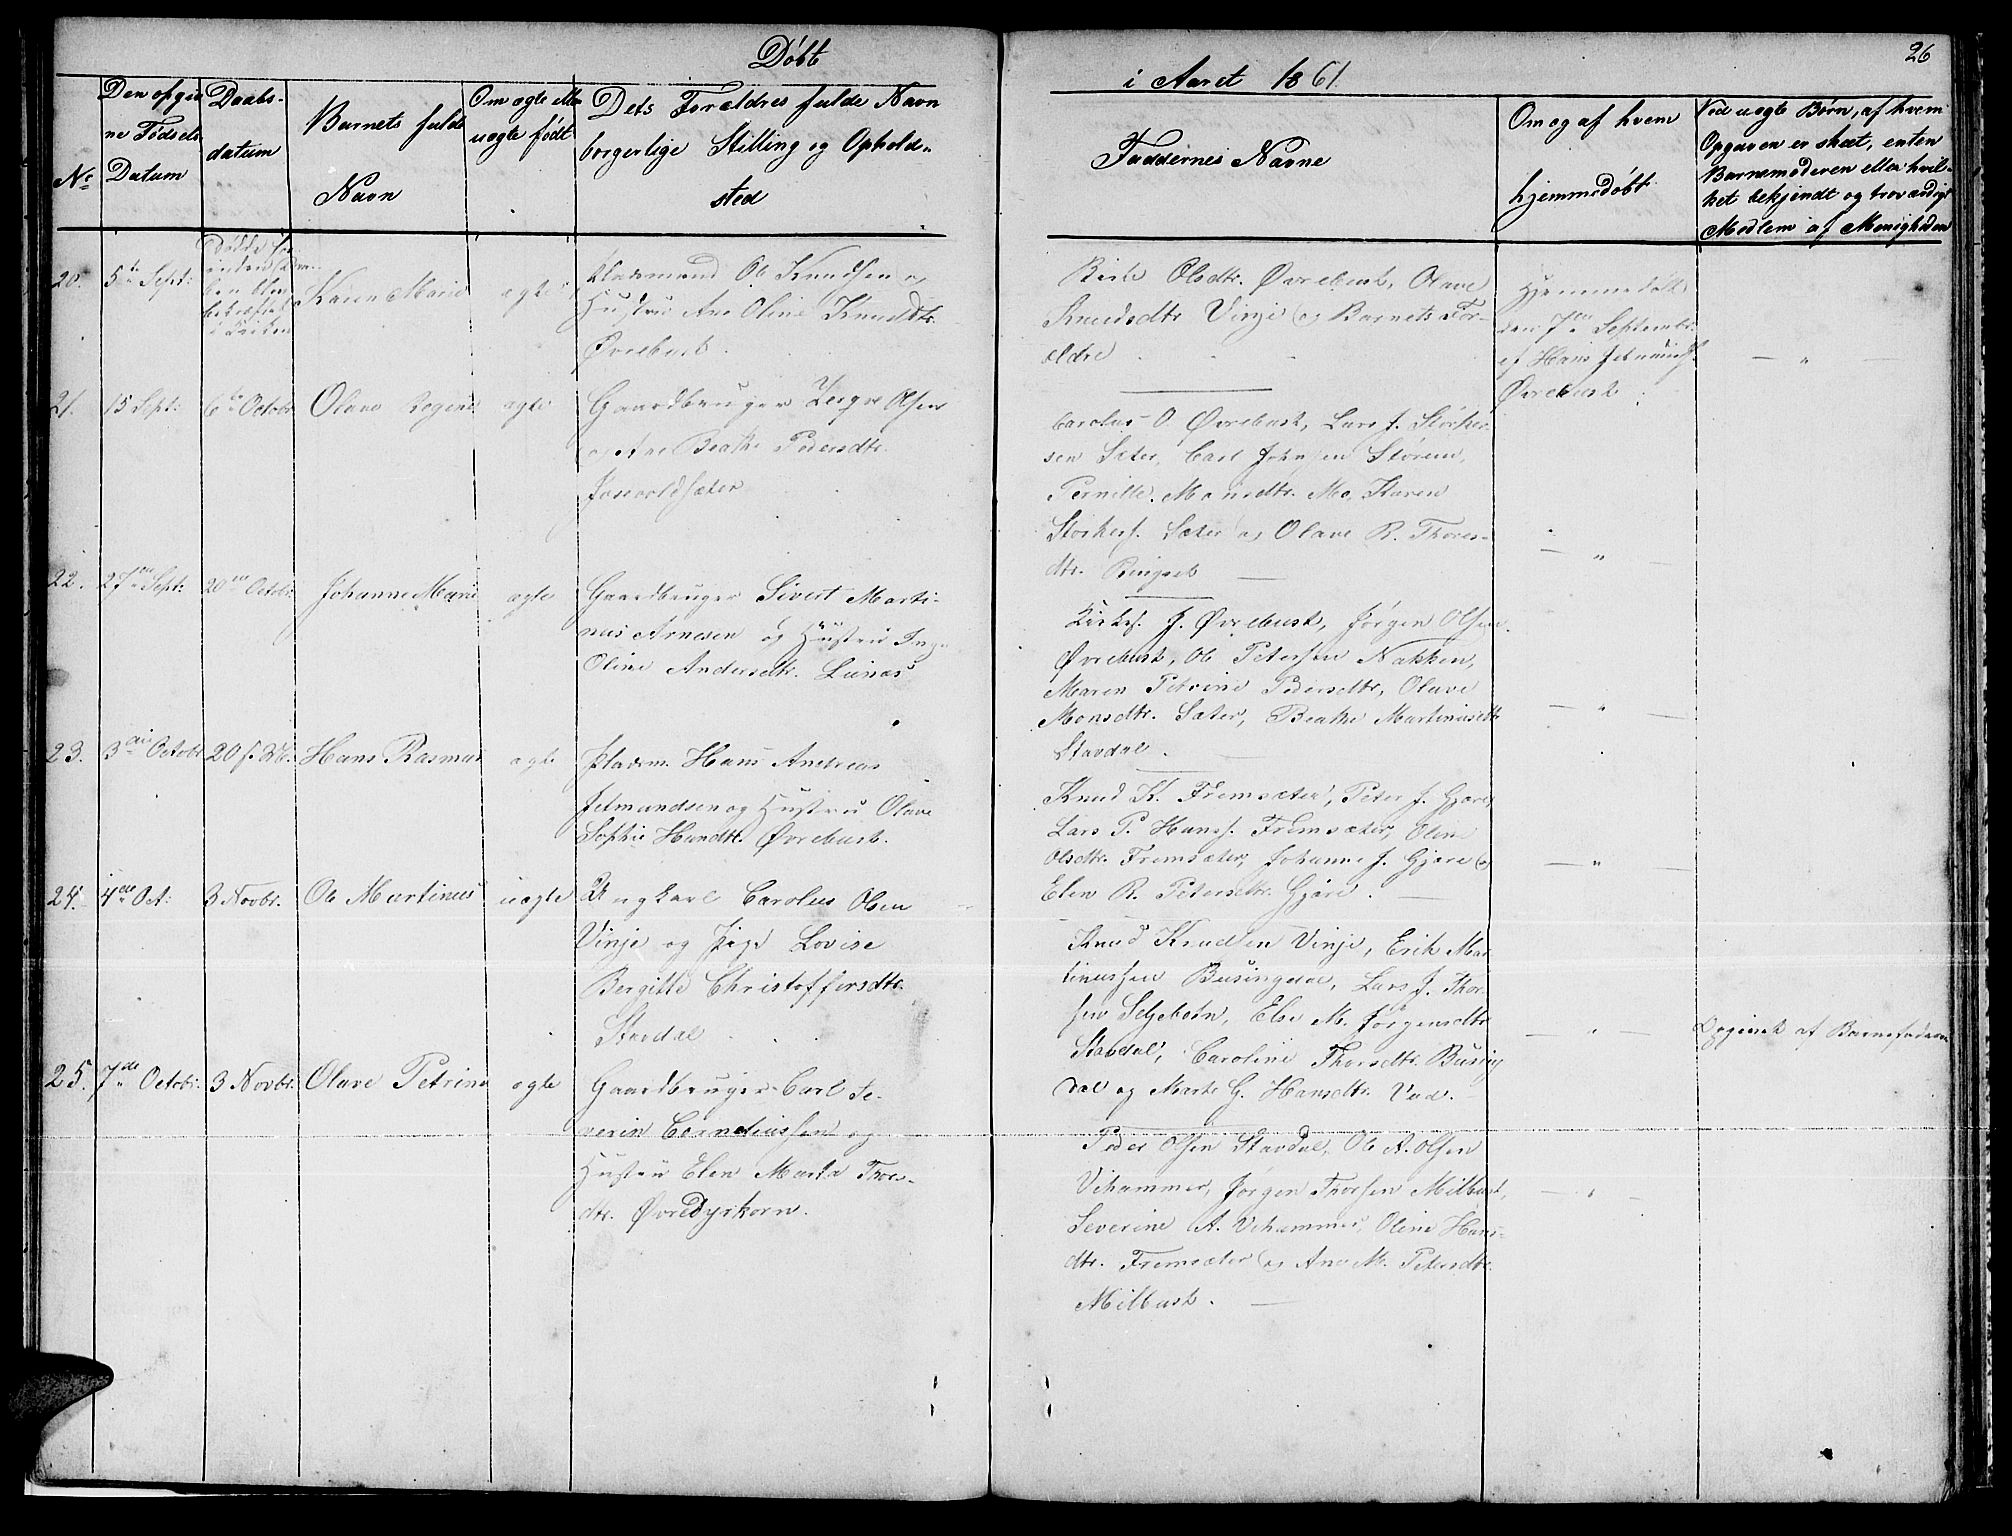 Døbt
i Aaret 1861.
26
No
Den opgiv
ne Fødsels
Datum
Daabs-
datum
Barnets fulde
Navn
Om ægte eller
uægte født
Dets Forældres fulde Navn
borgerlige Stilling og Ophold-
sted
Faddernes Navne
Om og af hvem
hjemmedøbt
Ved uægte Børn, af hvem
Opgaven er skeet, enten
Barnemoderen eller hvil-
ket bekjendt og troværdigt
Medlem af Menigheden
20.
5te Sept:
Døde for
inden Daa-
ben blev
bekræftet
i Kirken
Karen Marie
ægte
Pladsmand Ole Knudsen og
Hustru Ane Oline Knudsdtr.
Øvrebust.
Olsdtr. Øvrebust, Olave
Knudsdtr Vinje og Barnets For-
ældre
Hjemmedøbt
den 7de Septembr.
af Hans Jetmunds.
Øvrebust.
21.
15 Sept:
6te Octobr
Olave Regine
ægte
Gaardbruger Olsen
og Ane Beathe Pedersdtr.
Carolus O. Øvrebust, Lars J. Størker
sen Sæter, Carl Johnsen
Pernille Monsdtr. Mo, Karen
Størkers. Sæter og Olave R. Thores-
dtr. Ringset
22.
27de Sept:
20de Octobr.
Johanne Marie
ægte
Gaardbruger Sivert Marti-
nus Arnesen og Hustru Ing-
Oline Andersdtr. Lianæs
J. Øvrebust, Jørgen Olsen
Øvrebust, Ole Petersen Nakken,
Maren Petrine Pedersdtr, Olave
Monsdtr. Sæter, Beathe Martinusdtr
Stavdal.
23.
3die Octobr
20 s. M.
Hans Rasmus
ægte
Pladsm. Hans Andreas
Jetmundsen og Hustru Olave
Sophie Hansdtr. Øvrebust.
Knud K. Fremsæter, Peter J. Gjære,
Lars P. Hanss. Fremsæter, Oline
Olsdtr. Fremsæter, Johanne J. Gjære og
Elen R. Petersdtr. Gjære.
24.
4de Oct:
3 Novbr.
Ole Martinus
uægte
Ungkarl Carolus Olsen
Vinje og Pige Lovise
Bergitte Christoffersdtr.
Stavdal
Knud Knudsen Vinje, Erik Mar
tinussen Busingdal, Lars J. Thor-
sen Seljebotn, Else M. Jørgensdtr
Stavdal, Caroline Thorsdtr. Busing
dal og Marte G. Hansdtr. Vad.
Opgivet af Barnefaderen
25.
7de Octobr.
3 Novbr.
Olave Petrine
ægte
Gaardbruger Carl Se-
verin Corneliussen og
Hustru Elen Marta Thors-
dtr. Øvredyrkorn.
Peder Olsen Stavdal, Ole A. Olsen
Vihammer, Jørgen Thorsen Milbust,
Severine A. Vihammer, Oline Hans-
dtr. Fremsæter og Ane M. Petersdtr.
Milbust.